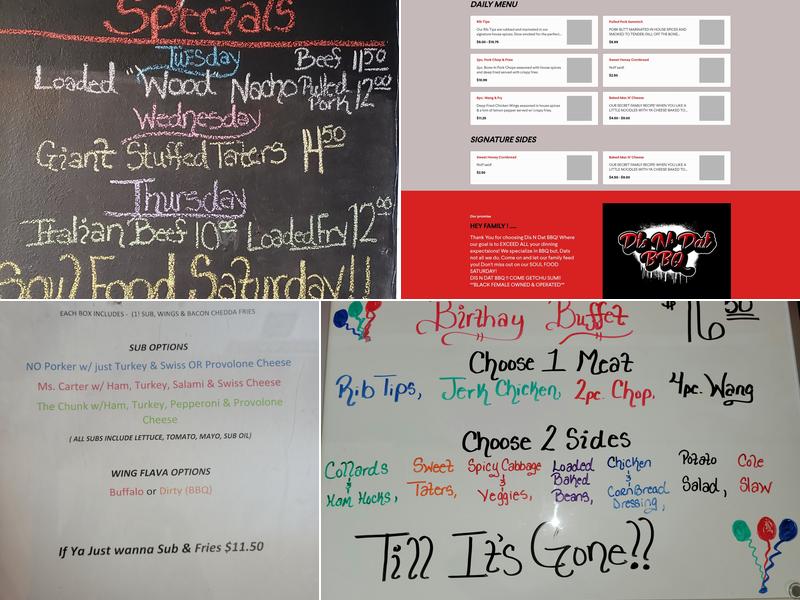 Specials
Tuesday
Beef 11 50
Loaded "Wood Nacho Pulled Pork 12 00
Wednesday
Giant Stuffed Taters 14 50
Thursday
Italian Beef 10 00 Loaded Fry 12 00
Soul Food Saturday!!
DAILY MENU
Rib Tips
Our Rib Tips are rubbed and marinated in our
signature house spices. Slow smoked for the perfect...
Pulled Pork Sandwich
PORK BUTT MARINATED IN HOUSE SPICES AND
SMOKED TO TENDER, FALL OFF THE BONE...
$8.99
2pc. Pork Chop & Fries
2pc. Bone-in Pork Chops seasoned with house spices
and deep fried served with crispy fries.
Sweet Honey Cornbread
$2.50
6pc. Wang & Fry
Deep Fried Chicken Wings seasoned in house spices
& a hint of lemon pepper served w/ crispy fries.
$11.25
Baked Mac N' Cheese
OUR SECRET FAMILY RECIPE WHEN YOU LIKE A
LITTLE NOODLES WITH YA CHEESE BAKED TO...
$4.50 - $9.00
SIGNATURE SIDES
Sweet Honey Cornbread
$2.50
Baked Mac N' Cheese
OUR SECRET FAMILY RECIPE WHEN YOU LIKE A
LITTLE NOODLES WITH YA CHEESE BAKED TO...
$4.50 - $9.00
Our promise
HEY FAMILY ! ....
Thank You for choosing Dis N Dat BBQ! Where
our goal is to EXCEED ALL your dinning
expectations! We specialize in BBQ but, Dats
not all we do. Come on and let our family feed
you! Don't miss out on our SOUL FOOD
SATURDAY!
DIS N DAT BBQ !! COME GETCHU SUM!!
**BLACK FEMALE OWNED & OPERATED**
Dis N Dat
BBQ
EACH BOX INCLUDES - (1) SUB, WINGS & BACON CHEDDA FRIES
SUB OPTIONS
NO Porker w/ just Turkey & Swiss OR Provolone Cheese
Ms. Carter w/ Ham, Turkey, Salami & Swiss Cheese
The Chunk w/Ham, Turkey, Pepperoni & Provolone
Cheese
( ALL SUBS INCLUDE LETTUCE, TOMATO, MAYO, SUB OIL)
WING FLAVA OPTIONS
Buffalo or Dirty (BBQ)
If Ya Just wanna Sub & Fries $11.50
Birthay Buffet $16 50
Choose 1 Meat
Rib Tips, Jerk Chicken, 2pc. Chop, 4pc. Wang
Choose 2 Sides
Collards & Ham Hocks,
Sweet Taters,
Spicy Cabbage & Veggies,
Loaded Baked Beans,
Chicken & CornBread Dressing,
Potato Salad,
Cole Slaw
Till It's Gone!!